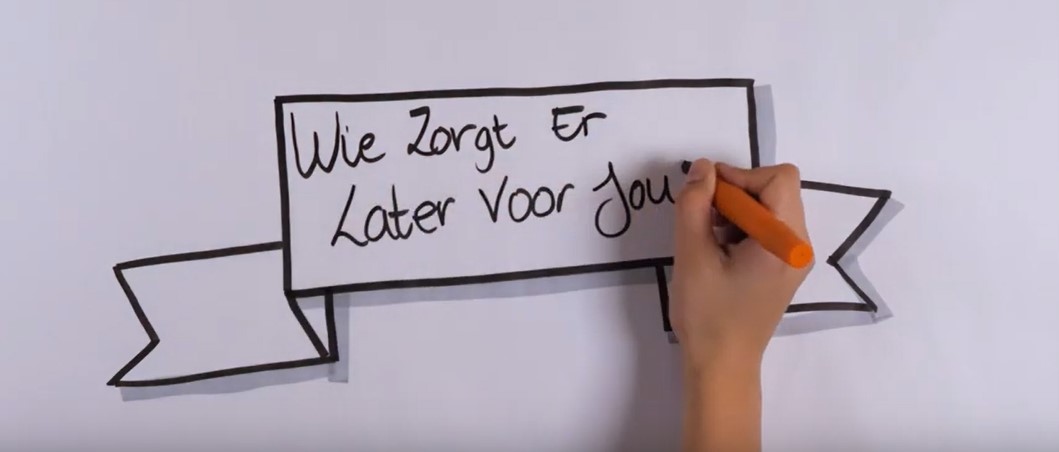 Wie Zorgt Er
Later Voor Jou